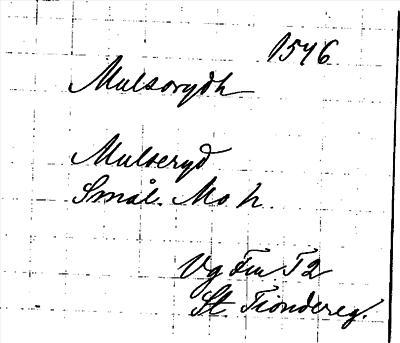 1546
Mulsorydh
Mulseryd
Smål. Mo h.
Vg Fnu T2
St. Tiondereg.